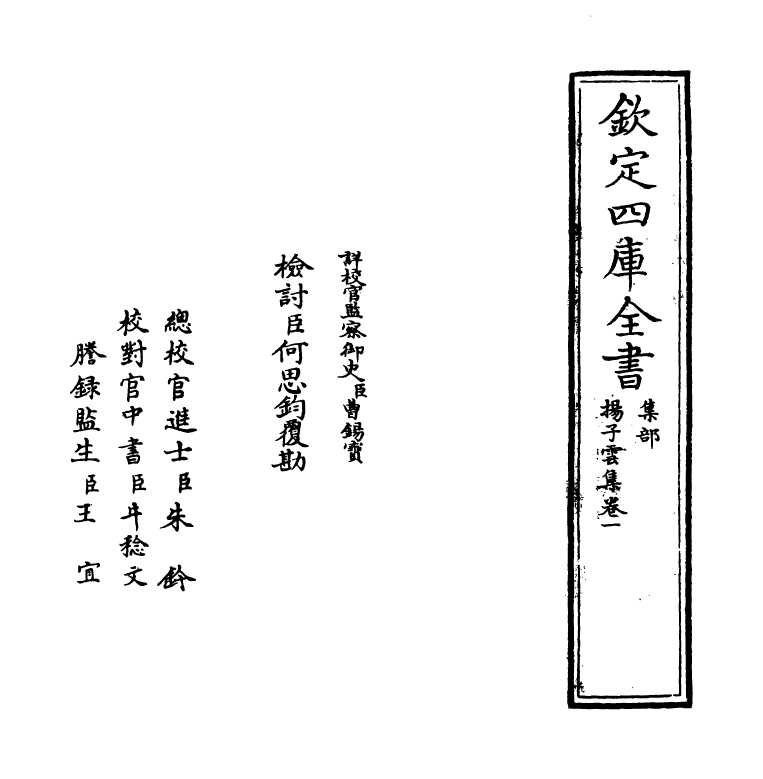 欽定四庫全書
集部
揚子雲集卷一
詳校官監察御史臣曹錫寶
檢討臣何思鈞覆勘
總校官進士臣朱鈐
校對官中書臣牛稔文
謄録監生臣王宜